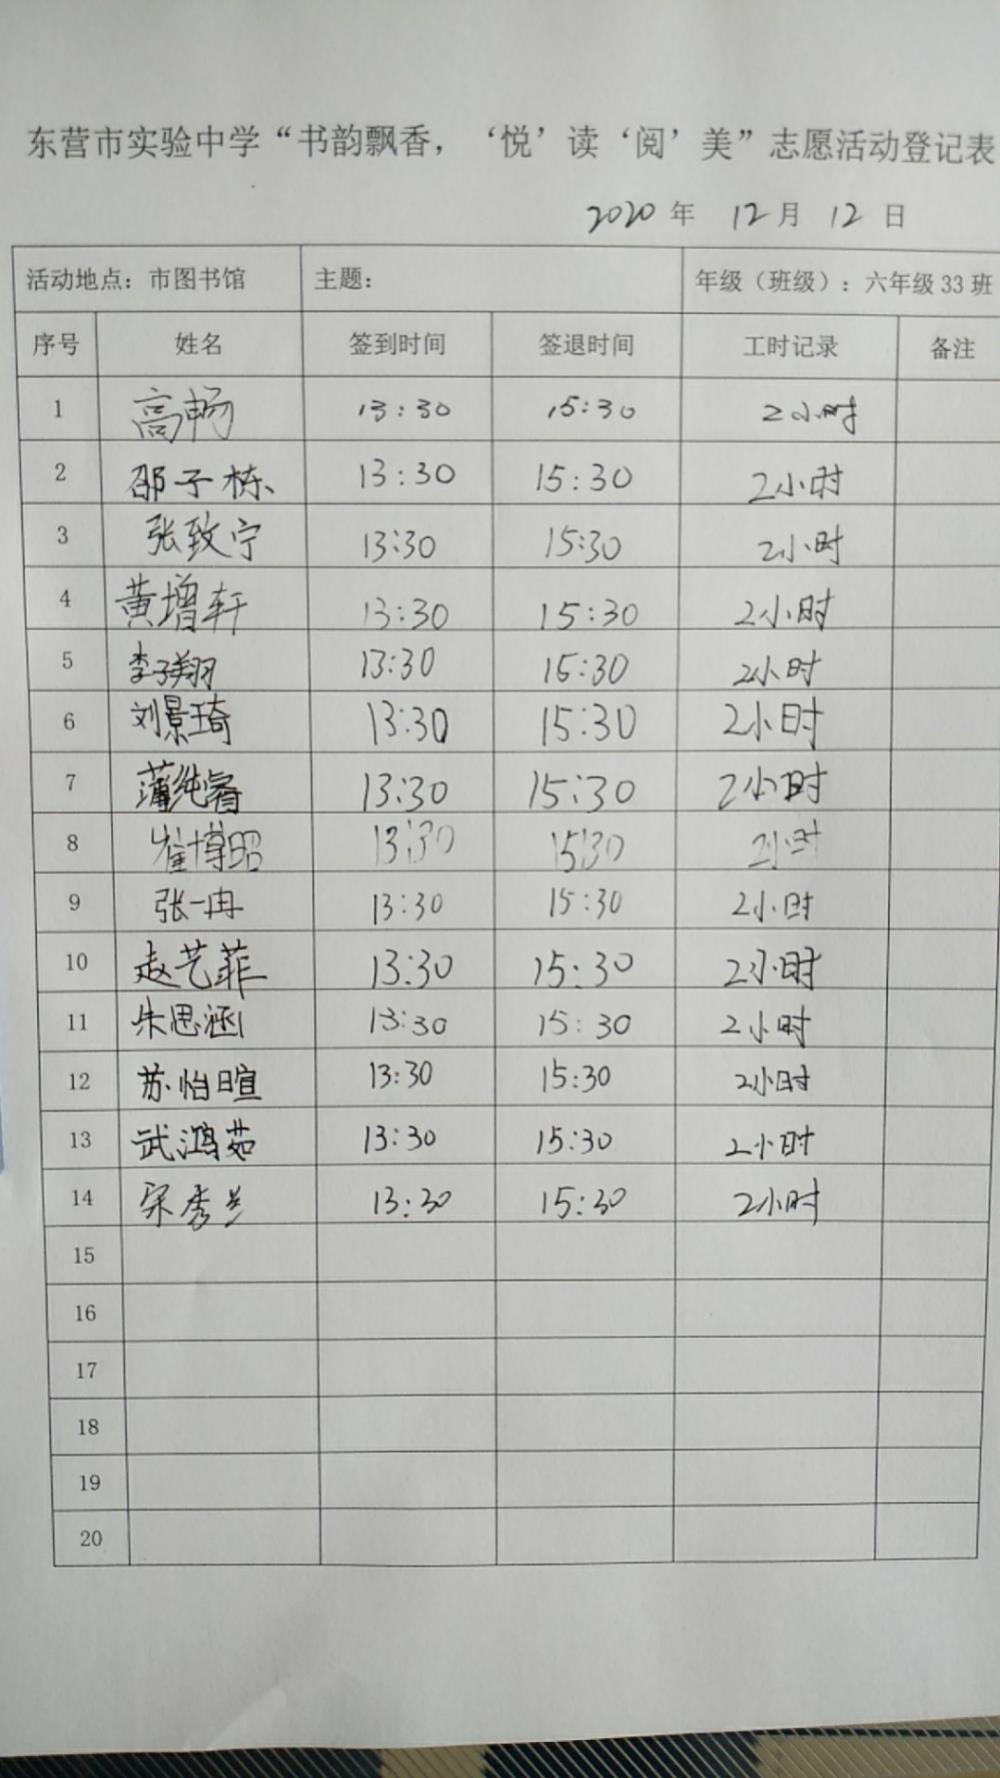 东营市实验中学“书韵飘香，‘悦’读‘阅’美”志愿活动登记表
2020 年 12 月 12 日
活动地点：市图书馆 主题： 年级（班级）：六年级 33 班
序号 姓名 签到时间 签退时间 工时记录 备注
1 高畅 13:30 15:30 2小时
2 邵子栋 13:30 15:30 2小时
3 张致宁 13:30 15:30 2小时
4 黄增轩 13:30 15:30 2小时
5 李子翔 13:30 15:30 2小时
6 刘景琦 13:30 15:30 2小时
7 蒲纯睿 13:30 15:30 2小时
8 崔博昭 13:30 15:30 2小时
9 张一冉 13:30 15:30 2小时
10 赵艺菲 13:30 15:30 2小时
11 朱思涵 13:30 15:30 2小时
12 苏怡暄 13:30 15:30 2小时
13 武鸿茹 13:30 15:30 2小时
14 宋秀兰 13:30 15:30 2小时
15
16
17
18
19
20